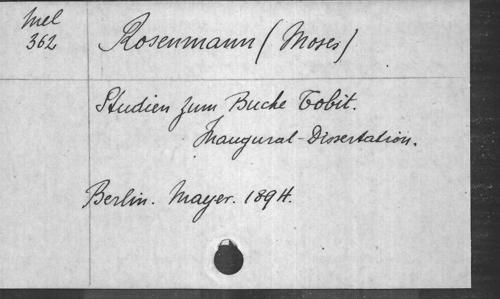 Mel
362
Rosenmann (Moses)
Studien zum Buche Tobit.
Inaugural-Dissertation.
Berlin. Mayer. 1894.